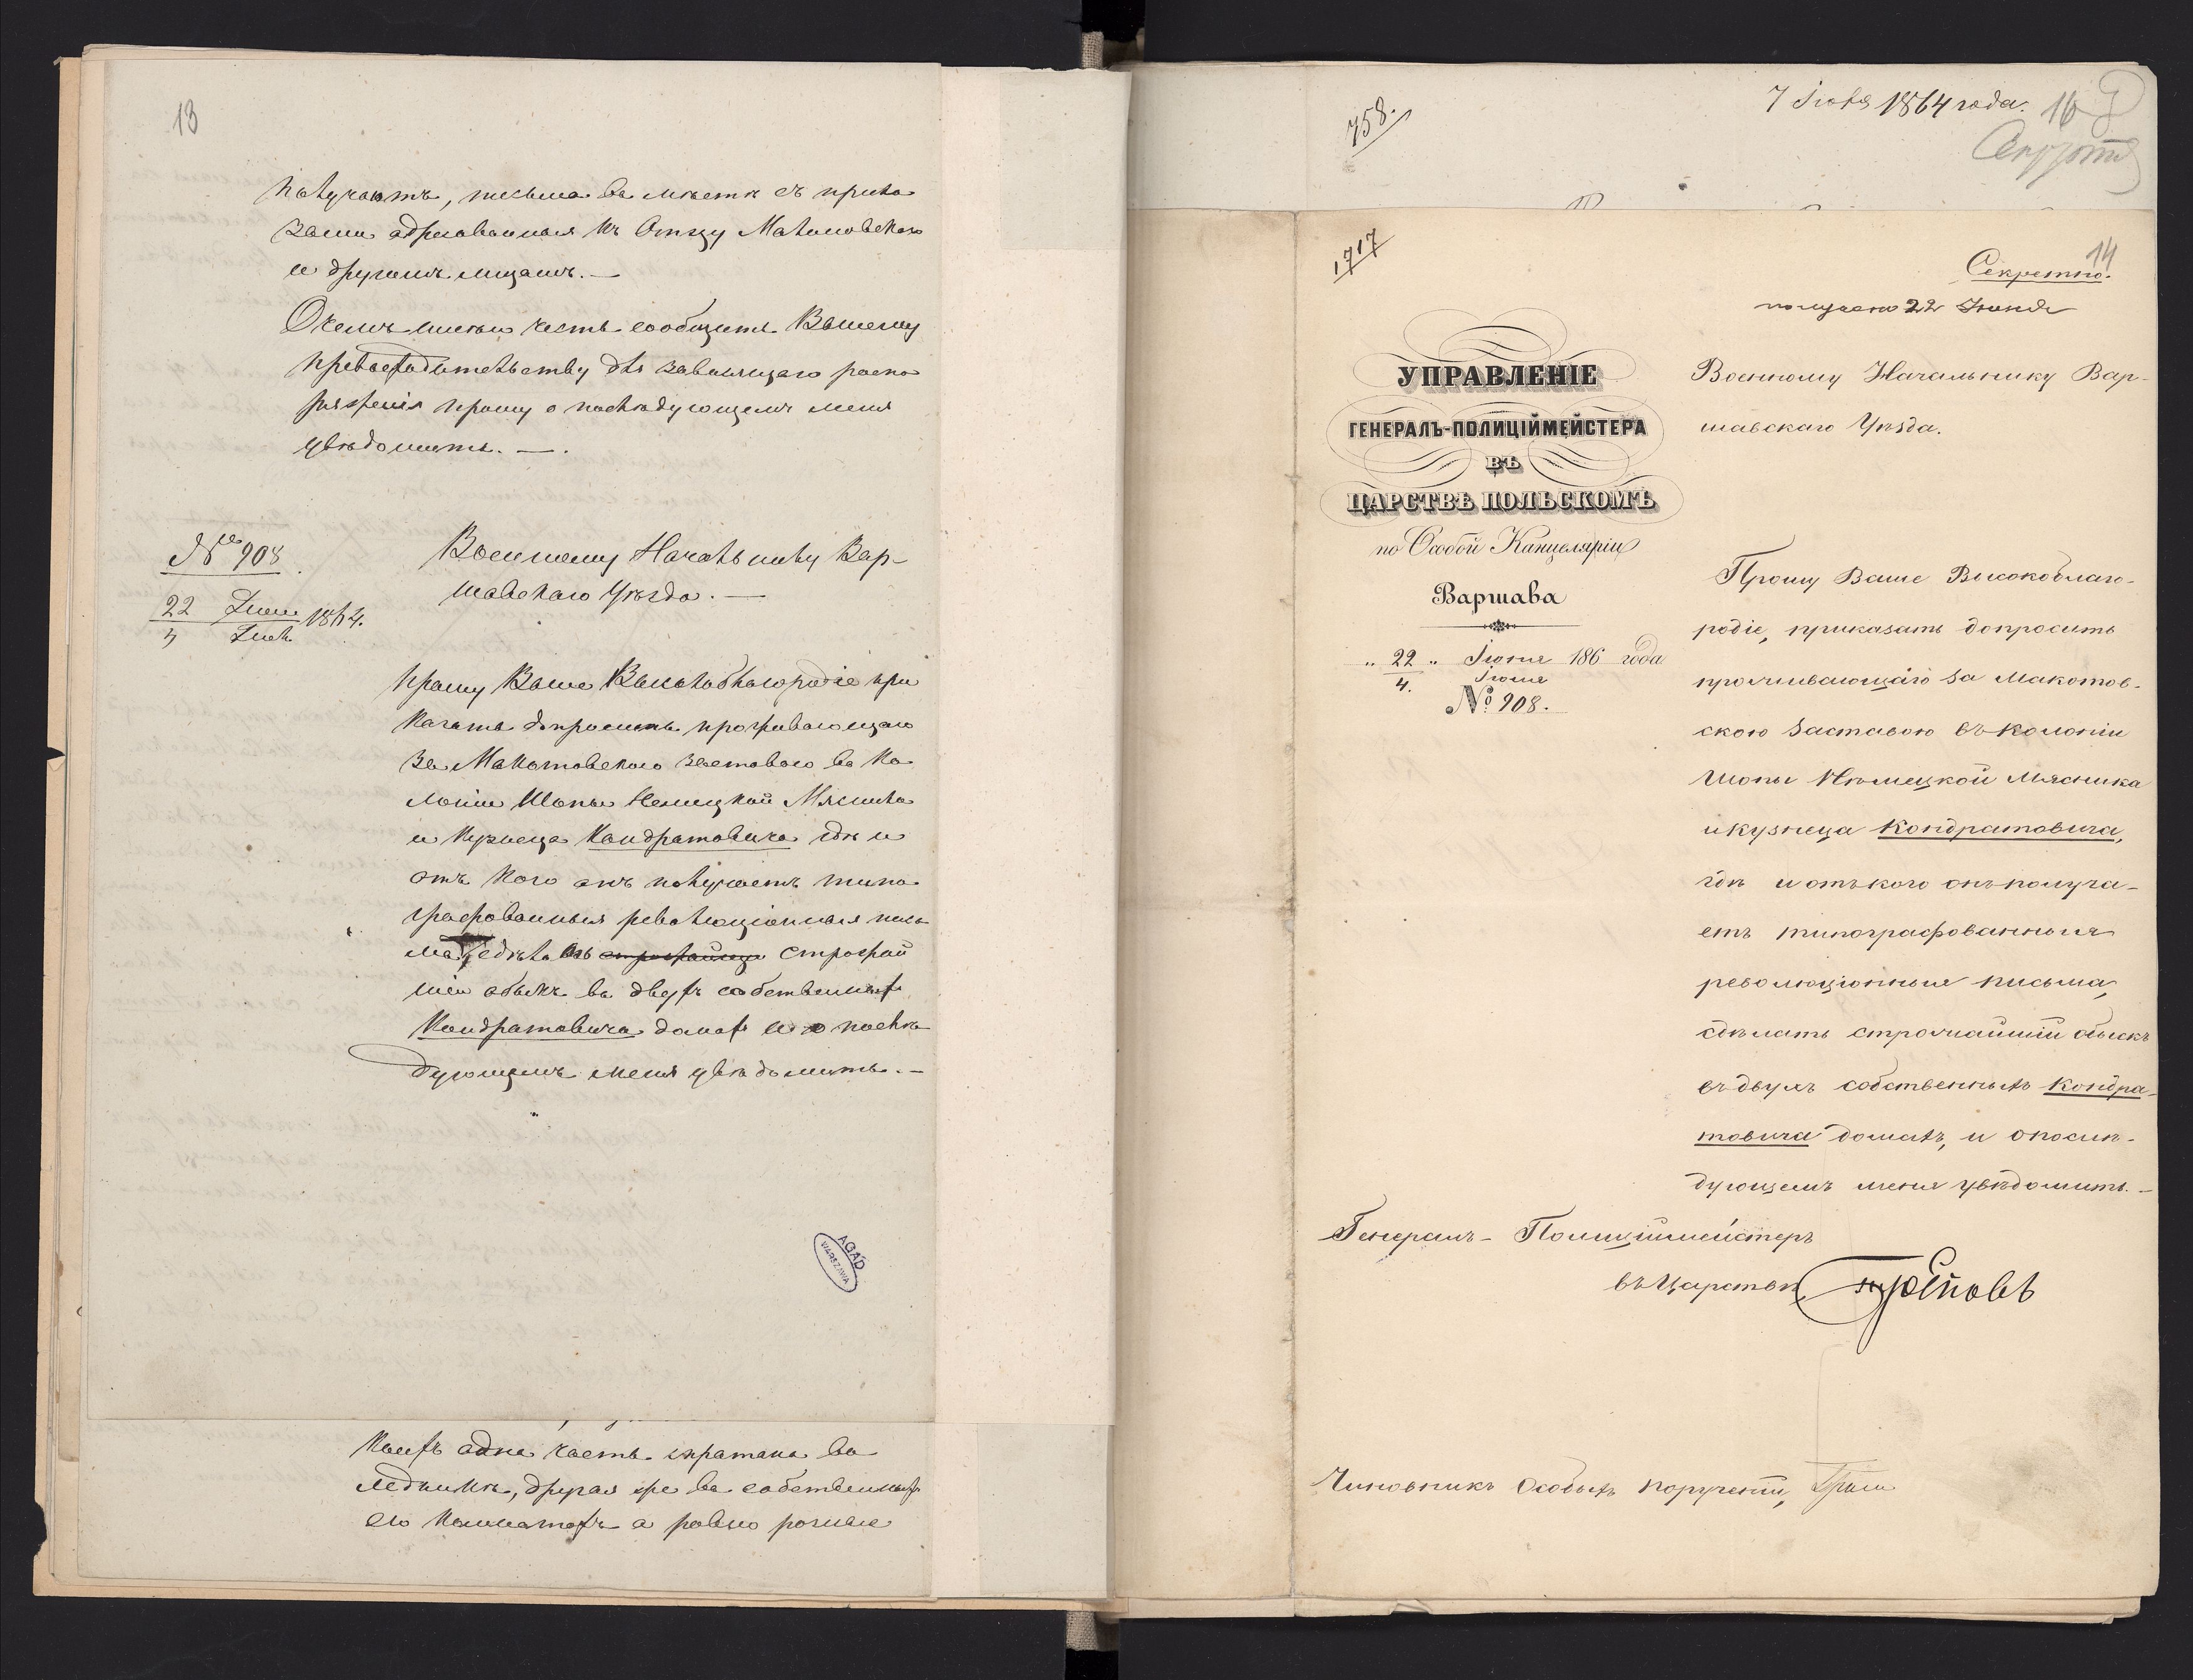 13
получаютъ, письма въ мѣстѣ съ прика
зами адресованныя къ Отцу Малиновскому
и другимъ лицамъ. —
О чемъ имѣю честь сообщить Вашему
Превосходительству для зависящаго распо
ряженія прошу о послѣдующемъ меня
увѣдомить. —.
№ 908
22 Іюня
4 Іюля 1864.
Военному Начальнику Вар-
шавскаго Уѣзда. —
Прошу Ваше Высокоблагородіе при
казать допросить проживающаго
за Мокотовскою заставою въ Ко
лоніи Шопы Немецкой Мясника
и Кузнеца Кондратовича гдѣ и
отъ кого онъ получаетъ типо
графованныя революціонныя пись
ма, сдѣлать строжай
шій обыскъ въ двухъ собственныхъ
Кондратовича домахъ и о послѣ
дующемъ меня увѣдомить. —
AGAD
WARSZAWA
коихъ одна часть спрятана въ
ледникѣ, другая же въ собственныхъ
его комнатахъ а равно разные
758.
7 Іюля 1864 года.
16
Секретно
1717
14
Секретно.
получено 22 Іюня
УПРАВЛЕНІЕ
ГЕНЕРАЛЪ-ПОЛИЦІЙМЕЙСТЕРА
ВЪ
ЦАРСТВѢ ПОЛЬСКОМЪ
по Особой Канцеляріи
Варшава
„ 22 „ Іюня 186 года
4. Іюля
№ 908.
Военному Начальнику Вар-
шавскаго Уѣзда.
Прошу Ваше Высокоблаго-
родіе, приказать допросить
проживающаго за Макотов-
скою заставою въ колоніи
Шопы Нѣмецкой Мясника
и кузнеца Кондратовича,
гдѣ и отъ кого онъ получа-
етъ типографованныя
революціонныя письма,
сдѣлать строжайшій обыскъ
въ двухъ собственныхъ Кондра-
товича домахъ, и о послѣ-
дующемъ меня увѣдомить. —
Генералъ-Полиціймейстеръ
въ Царствѣ Треповъ
Чиновникъ Особыхъ порученій,